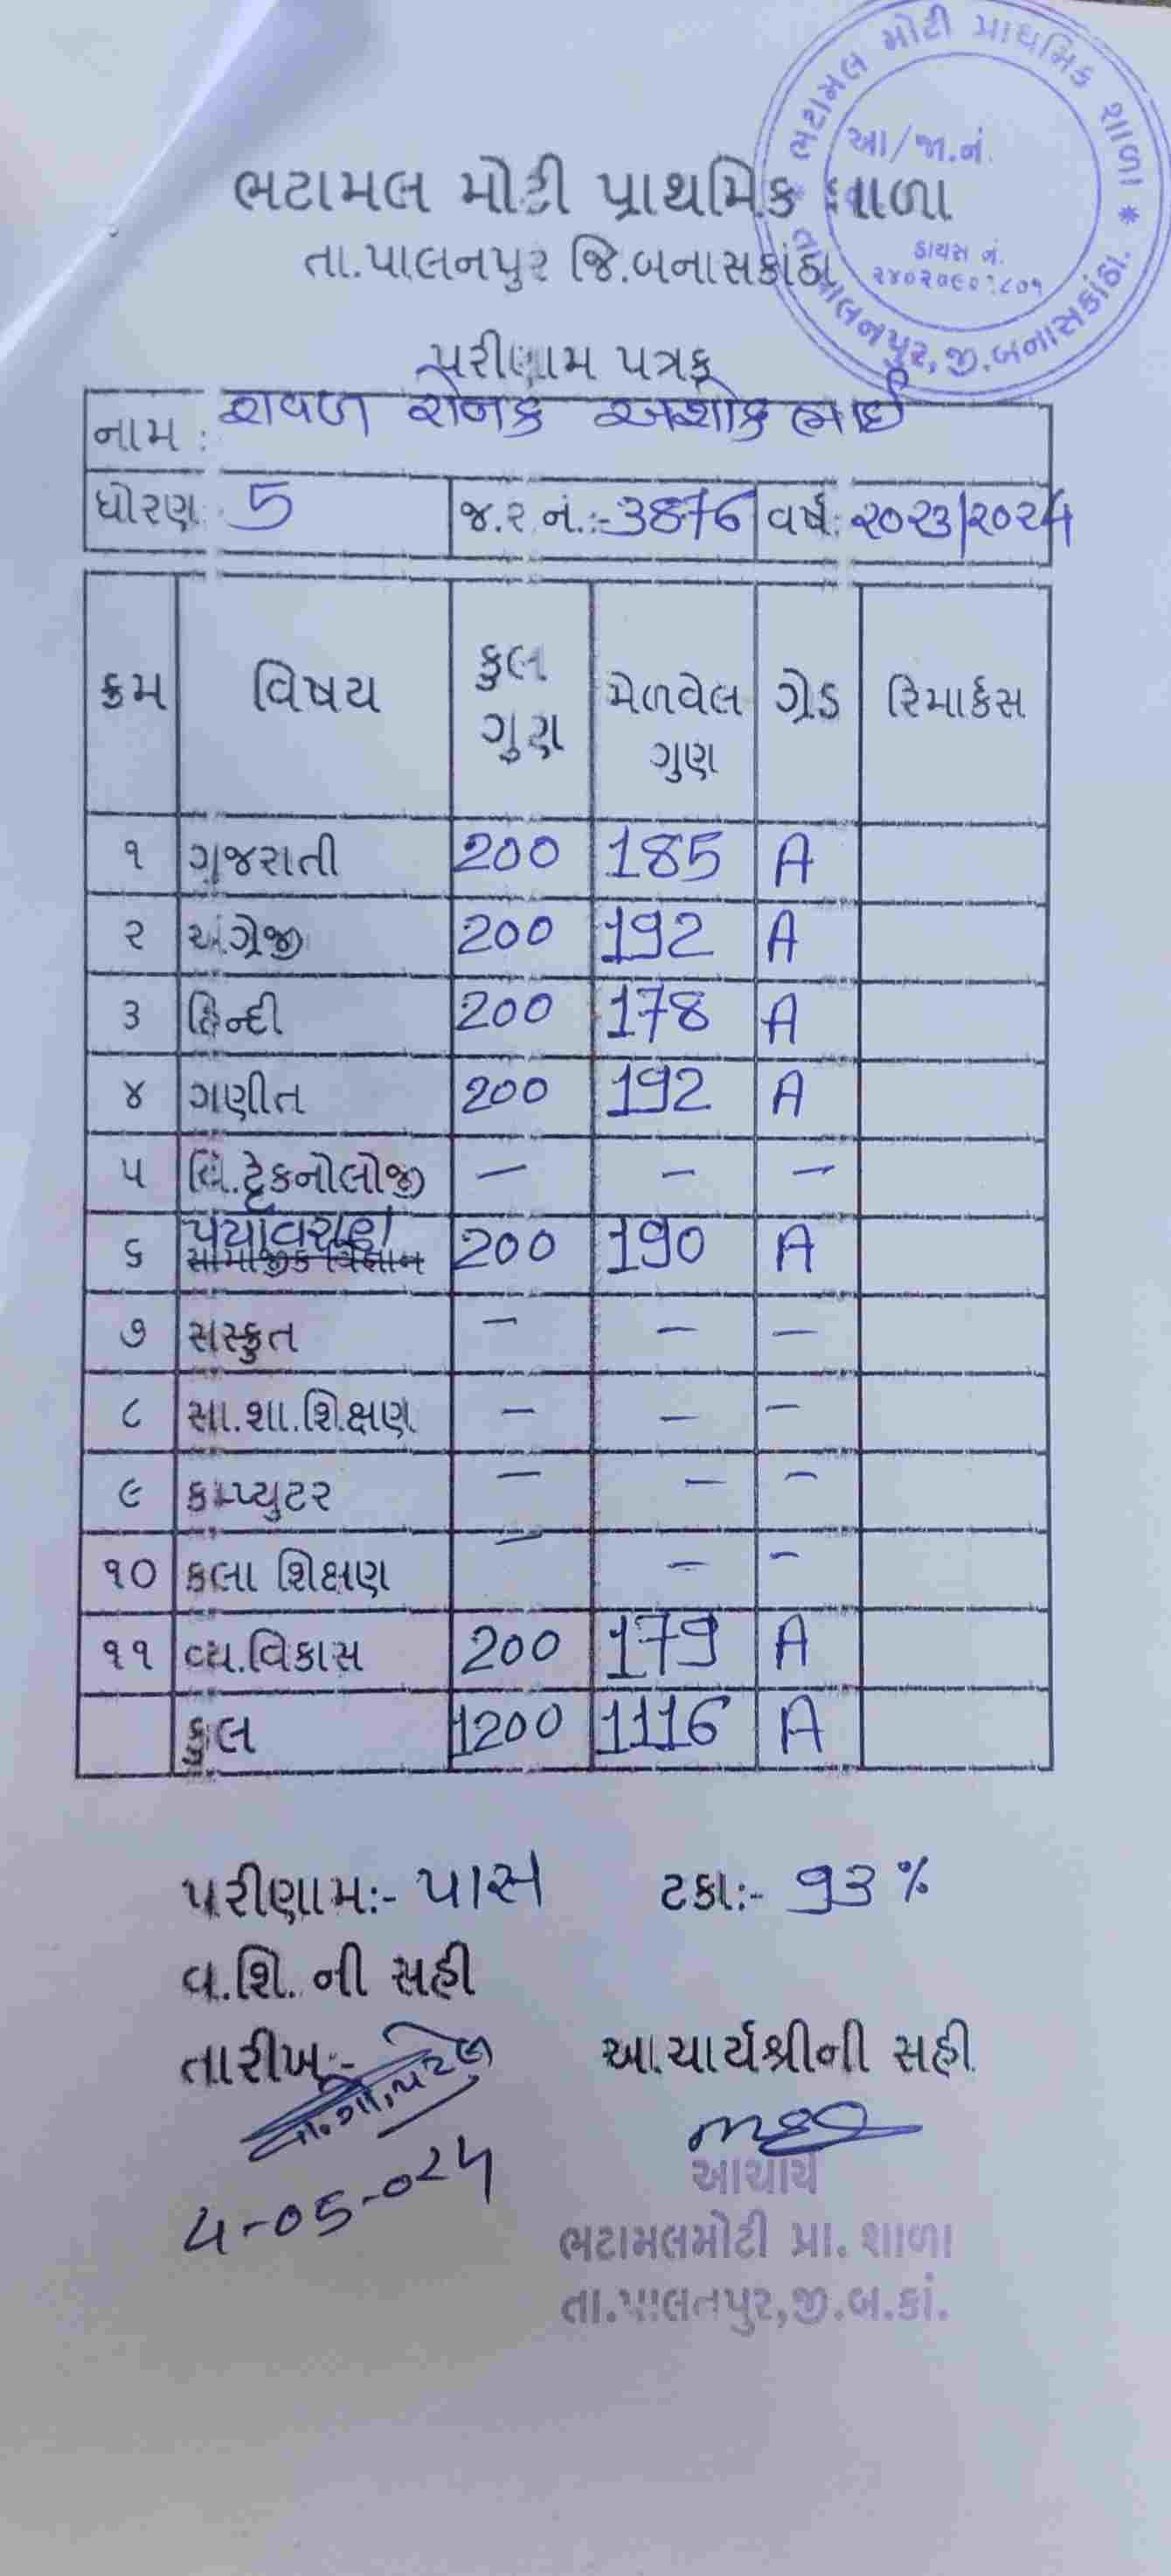 ભટામલ મોટી પ્રાથમિક શાળા *
આ/જા.નં.
ડાયસ નં.
તા.પાલનપુર,જી.બનાસકાંઠા. *
ભટામલ મોટી પ્રાથમિક શાળા
તા.પાલનપુર જિ.બનાસકાંઠા
પરીણામ પત્રક
નામ : રાવળ રોનક અશોકભાઈ
ધોરણ: 5 જ.ર.નં.:-3876 વર્ષ: ૨૦૨૩/૨૦૨૪
ક્રમ વિષય કુલ ગુણ મેળવેલ ગુણ ગ્રેડ રિમાર્કસ
૧ ગુજરાતી 200 185 A
૨ અંગ્રેજી 200 192 A
૩ હિન્દી 200 178 A
૪ ગણીત 200 192 A
૫ વિ.ટ્રેકનોલોજી - - -
૬ પર્યાવરણ સામાજીક વિજ્ઞાન 200 190 A
૭ સસ્કુત - - -
૮ સા.શા.શિક્ષણ - - -
૯ કમ્પ્યુટર - - -
૧૦ કલા શિક્ષણ - - -
૧૧ વ્ય.વિકાસ 200 179 A
કુલ 1200 1116 A
પરીણામ:- પાસ ટકા:- 93 %
વ.શિ. ની સહી
તારીખ:- આચાર્યશ્રીની સહી
4-05-024
આચાર્ય
ભટામલમોટી પ્રા. શાળા
તા.પાલનપુર,જી.બ.કાં.